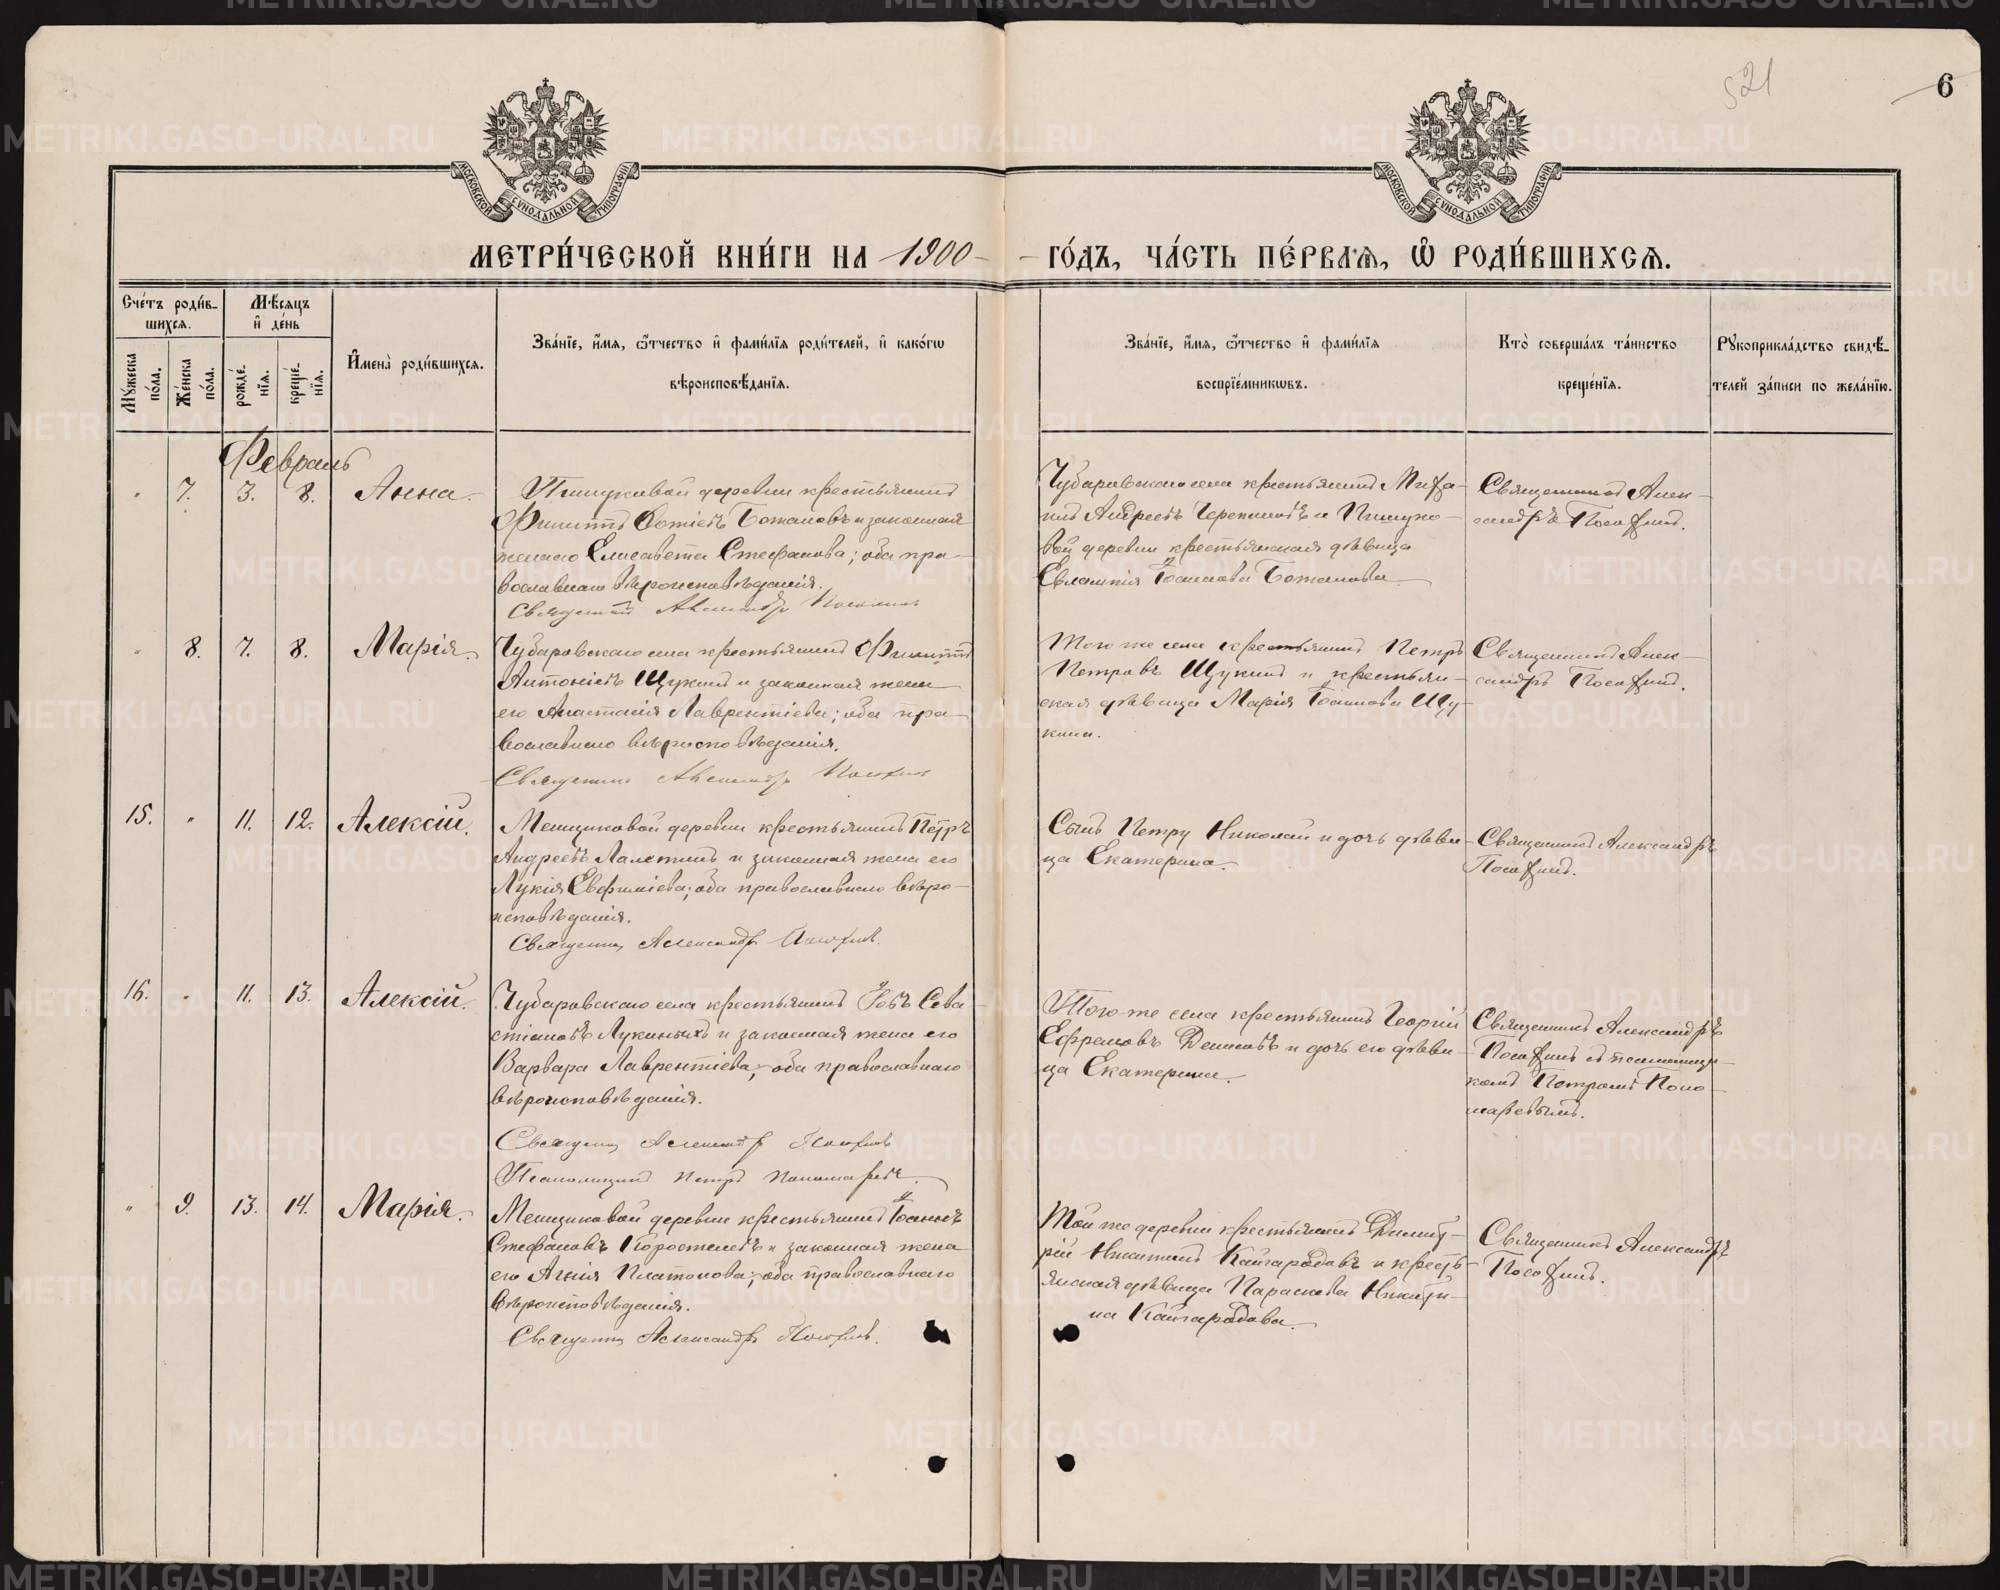 521
6
МОСКОВСКОЙ СУНОДАЛЬНОЙ ТИПОГРАФІИ
МОСКОВСКОЙ СУНОДАЛЬНОЙ ТИПОГРАФІИ
МЕТРИ́ЧЕСКОЙ КНИ́ГИ НА 1900
ГО́ДЪ, ЧА́СТЬ ПЕ́РВАѦ, Ѡ҆ РОДИ́ВШИХСѦ.
Сче́тъ роди́в-
шихсѧ.
Мѣ́сѧцъ
и҆ де́нь
Мꙋ́жеска по́ла.
Же́нска по́ла.
рожде́нїѧ.
креще́нїѧ.
И҆мена̀ роди́вшихсѧ.
Зва́нїе, и҆́мѧ, ѻ҆́тчество и҆ фами́лїѧ роди́телей, и҆ како́гѡ
вѣроисповѣ́данїѧ.
Зва́нїе, и҆́мѧ, ѻ҆́тчество и҆ фами́лїѧ
воспрїе́мникѡвъ.
Кто̀ соверша́лъ та́инство
креще́нїѧ.
Рꙋкоприкла́дство свидѣ́-
телей за́писи по жела́нїю.
Февраль
" 7. 3. 8. Анна.
деревни крестьянинъ
Филиппъ Фотіевъ Боталовъ и законная
жена его Елисавета Стефанова; оба пра-
вославнаго вѣроисповѣданія.
Священникъ Александръ
Чубаровскаго села крестьянинъ Миха-
илъ Андреевъ Черепановъ и
вой деревни крестьянская дѣвица
Евлампія Іоаннова Боталова
Священникъ Алек-
сандръ
" 8. 7. 8. Марія.
Чубаровскаго села крестьянинъ Филиппъ
Антоніевъ Щукинъ и законная жена
его Анастасія Лаврентіева; оба пра-
вославнаго вѣроисповѣданія.
Священникъ Александръ
Того же села крестьянинъ Петръ
Петровъ Щукинъ и крестьян-
ская дѣвица Марія Іоаннова Щу-
кина.
Священникъ Алек-
сандръ
15. " 11. 12. Алексій.
деревни крестьянинъ Петръ
Андреевъ и законная жена его
Лукія Евфиміева; оба православнаго вѣро-
исповѣданія.
Священникъ Александръ
Сынъ Петру Николай и дочь дѣви-
ца Екатерина.
Священникъ Александръ
16. " 11. 13. Алексій.
Чубаровскаго села крестьянинъ Іовъ Сева-
стіановъ Лукиныхъ и законная жена его
Варвара Лаврентіева; оба православнаго
вѣроисповѣданія.
Священникъ Александръ
Псаломщикъ Петръ Пономаревъ.
Того же села крестьянинъ Георгій
Ефремовъ Денисовъ и дочь его дѣви-
ца Екатерина.
Священникъ Александръ
съ псаломщи-
комъ Петромъ Поно-
маревымъ.
" 9. 13. 14. Марія.
деревни крестьянинъ Іоаннъ
Стефановъ Коростелевъ и законная жена
его Агнія Платонова; оба православнаго
вѣроисповѣданія.
Священникъ Александръ
Той же деревни крестьянинъ Димит-
рій Никитинъ Кайгородовъ и кресть-
янская дѣвица Параскева Никити-
на Кайгородова.
Священникъ Александръ
METRIKI.GASO-URAL.RU